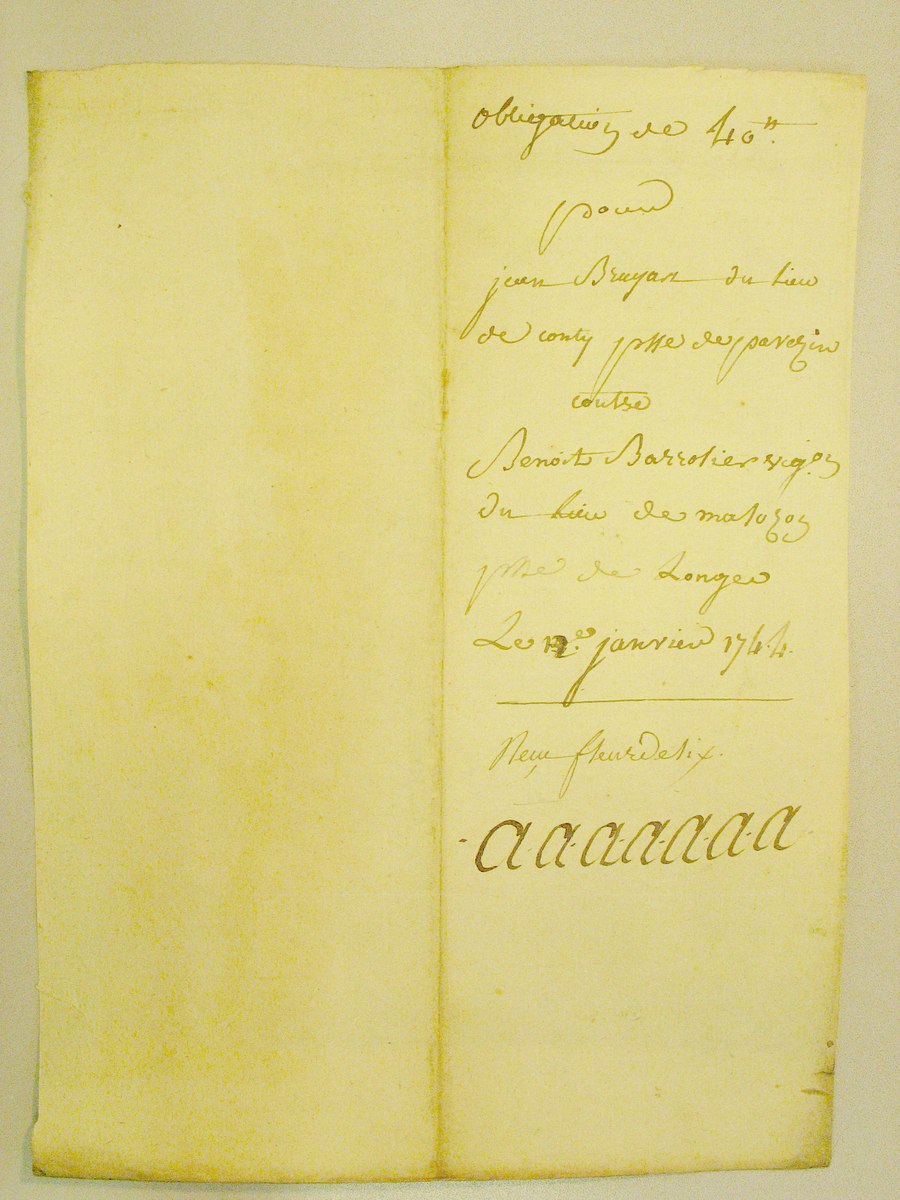 obligation de 40#
pour
jean Bruyas du lieu
de conty psse de pavezin
contre
Benoit Barrolier vigon
du lieu de malozon
psse de Longes
Le 12e janvier 1744.
fleurdelix.
a a a a a a a